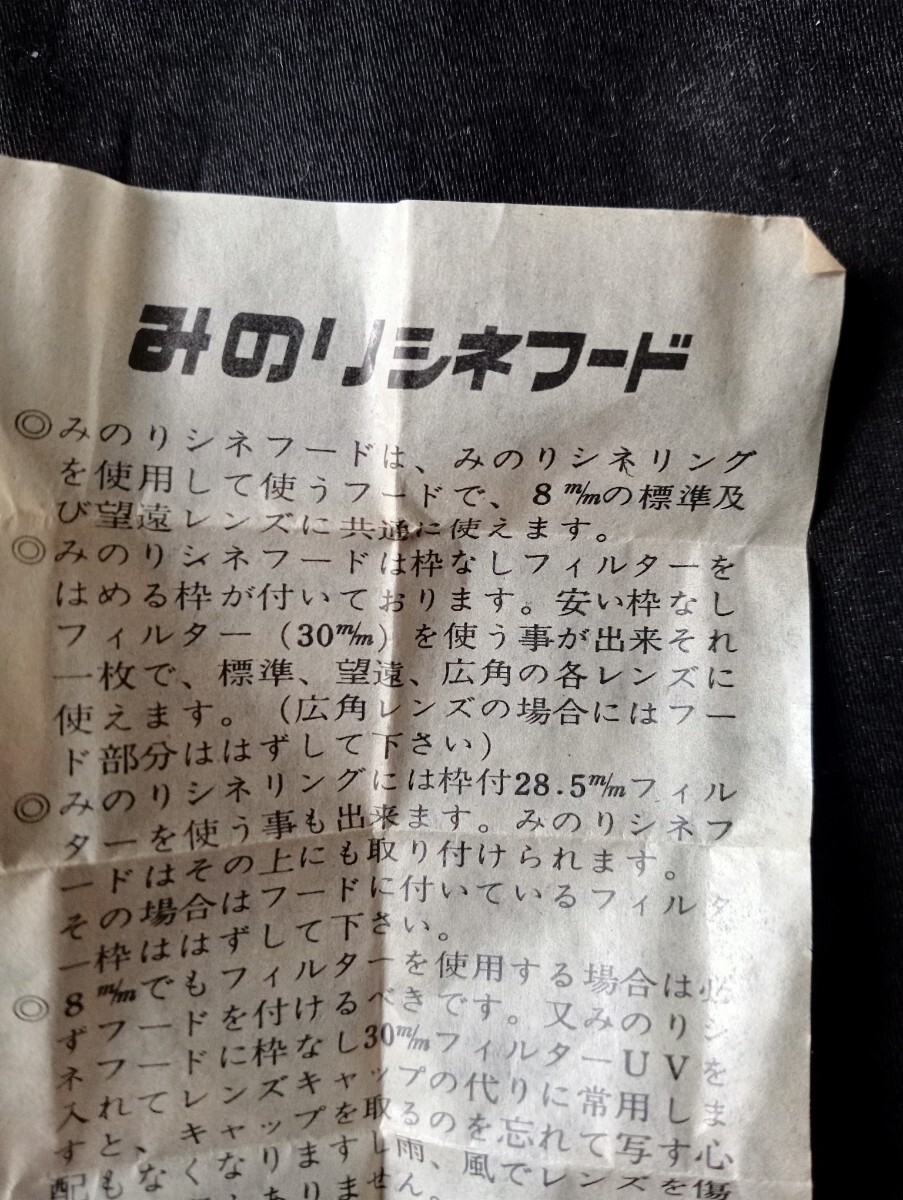 みのりシネフード
◎みのりシネフードは、みのりシネリング
を使用して使うフードで、8m/mの標準及
び望遠レンズに共通に使えます。
◎みのりシネフードは枠なしフィルターを
はめる枠が付いております。安い枠なし
フィルター(30m/m)を使う事が出来それ
一枚で、標準、望遠、広角の各レンズに
使えます。(広角レンズの場合にはフー
ド部分ははずして下さい)
◎みのりシネリングには枠付28.5m/mフィル
ターを使う事も出来ます。みのりシネフ
ードはその上にも取り付けられます。
その場合はフードに付いているフィルタ
ー枠ははずして下さい。
◎8m/mでもフィルターを使用する場合は必
ずフードを付けるべきです。又みのりシ
ネフードに枠なし30m/mフィルターUVを
入れて、レンズキャップの代りに常用しま
すと、キャップを取るのを忘れて写す心
配もなくなりますし、雨、風でレンズを傷
ありません。